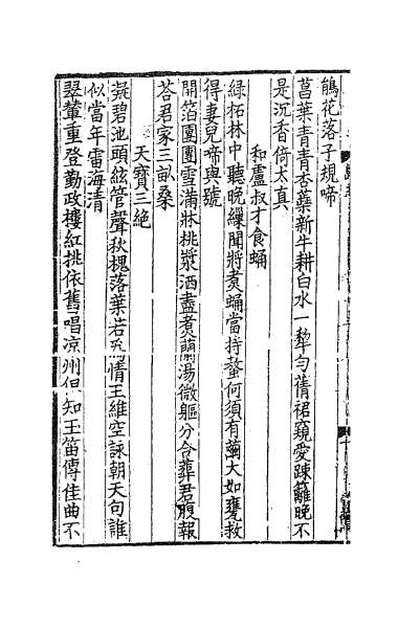 鵑花落子規啼
菖葉青青杏蘂新牛耕白水一犂勻舊裙窺愛踈籬晚不
是沉香倚太真
和盧叔才食蛹
綠柘林中聽晚繅聞將煑蛹當持螯何須有繭大如甕救
得妻兒啼與號
開箔團團雪滿牀桃漿洒盡煑蘭湯微軀分合葬君腹報
荅君家三畝桑
天寶三絶
凝碧池頭絃管聲秋槐落葉若為情王維空詠朝天句誰
似當年雷海清
翠輦重登勤政樓紅桃依舊唱凉州但知玉笛傳佳曲不